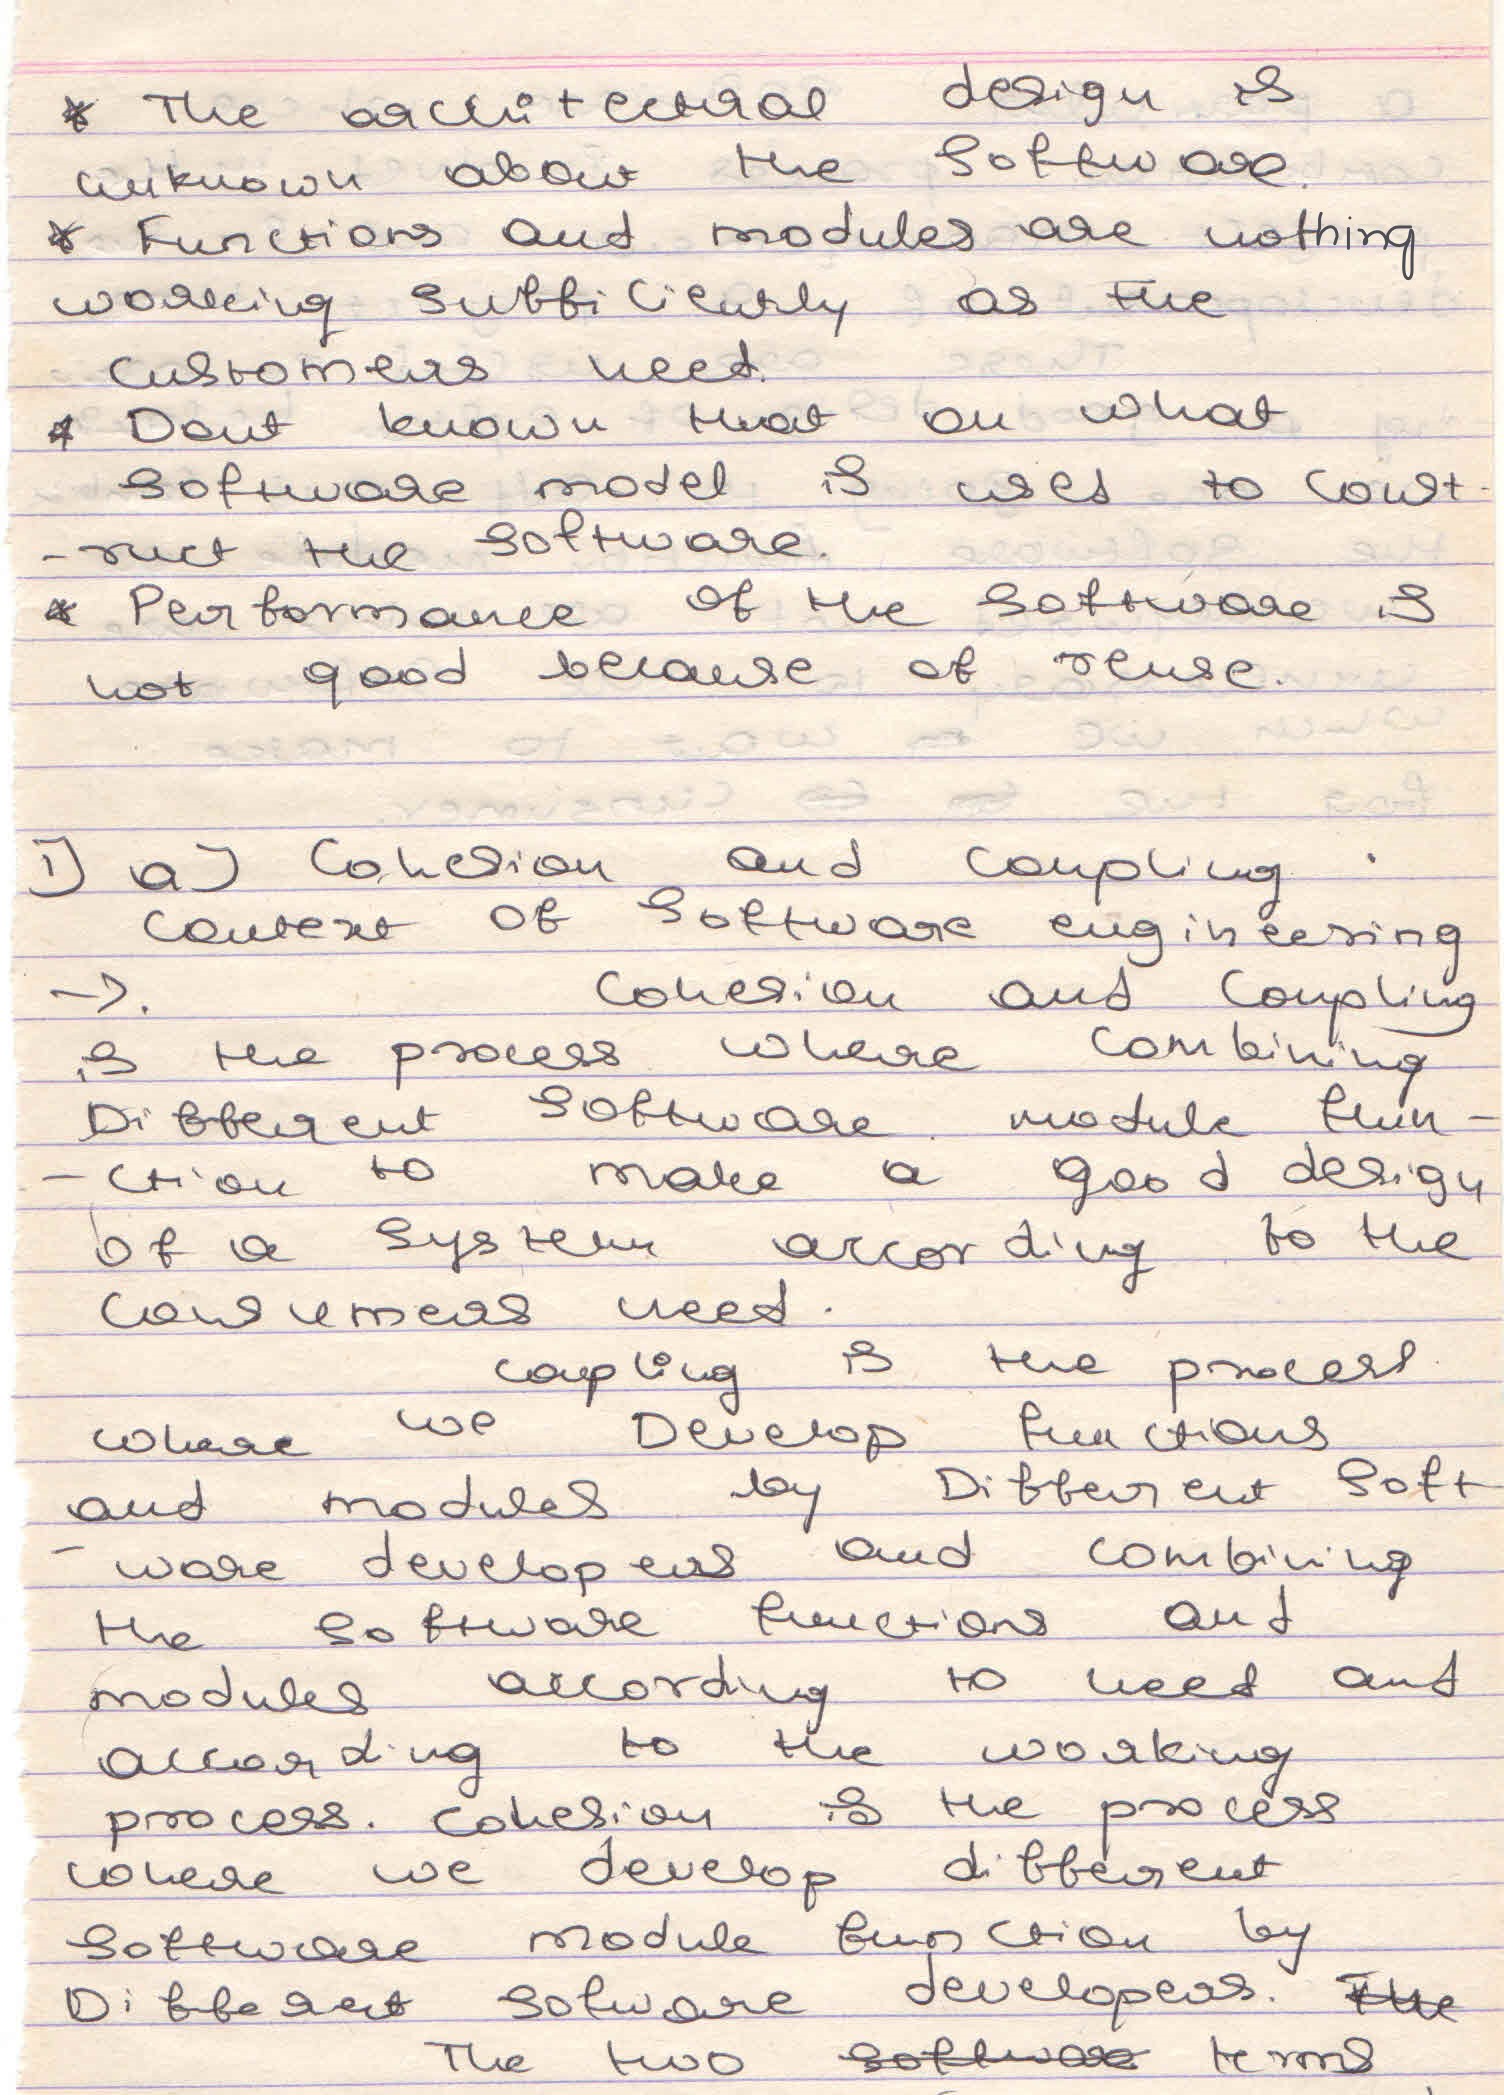 * The architectural design is
unknown about the Software.
* Functions and modules are nothing
working sufficiently as the
customers need.
* Dont known that on what
software model is used to const-
-ruct the software.
* Performance of the software is
not good because of reuse.
1) a) Cohesion and coupling.
context of Software engineering
→. Cohesion and Coupling
is the process where combining
Different Software module fun-
-ction to make a good design
of a system according to the
consumers need.
coupling is the process
where we Develop functions
and modules by Different Soft
-ware developers and combining
the software functions and
modules according to need and
according to the working
process. cohesion is the process
where we develop different
software module function by
Different sotware developers. The
The two software terms